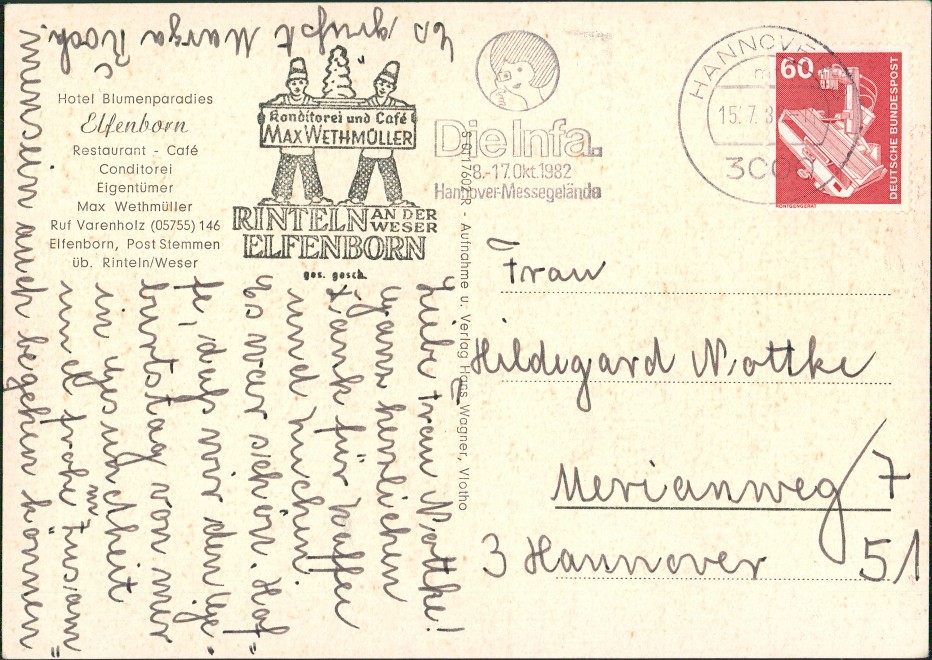 Hotel Blumenparadies
Elfenborn
Restaurant - Café
Conditorei
Eigentümer
Max Wethmüller
Ruf Varenholz (05755) 146
Elfenborn, Post Stemmen
üb. Rinteln/Weser
Konditorei und Café
MAX WETHMÜLLER
RINTELN AN DER WESER
ELFENBORN
ges. gesch.
Aufnahme u. Verlag Hans Wagner, Vlotho
Die Infa.
8.-17. Okt. 1982
Hannover-Messegelände
HANNOVER
15.7.8
3000
60
DEUTSCHE BUNDESPOST
RÖNTGENGERÄT
Frau
Hildegard Nottke
Merianweg 7
3 Hannover 51
Liebe Frau Nottke!
Ganz herzlichen
Dank für Kaffee
und Kuchen.
Es war schön. Hof-
fe, daß wir den Ge-
burtstag von mir
in Gesundheit
und Frohsinn
auch begehen können
Es grüßt Marga Koch